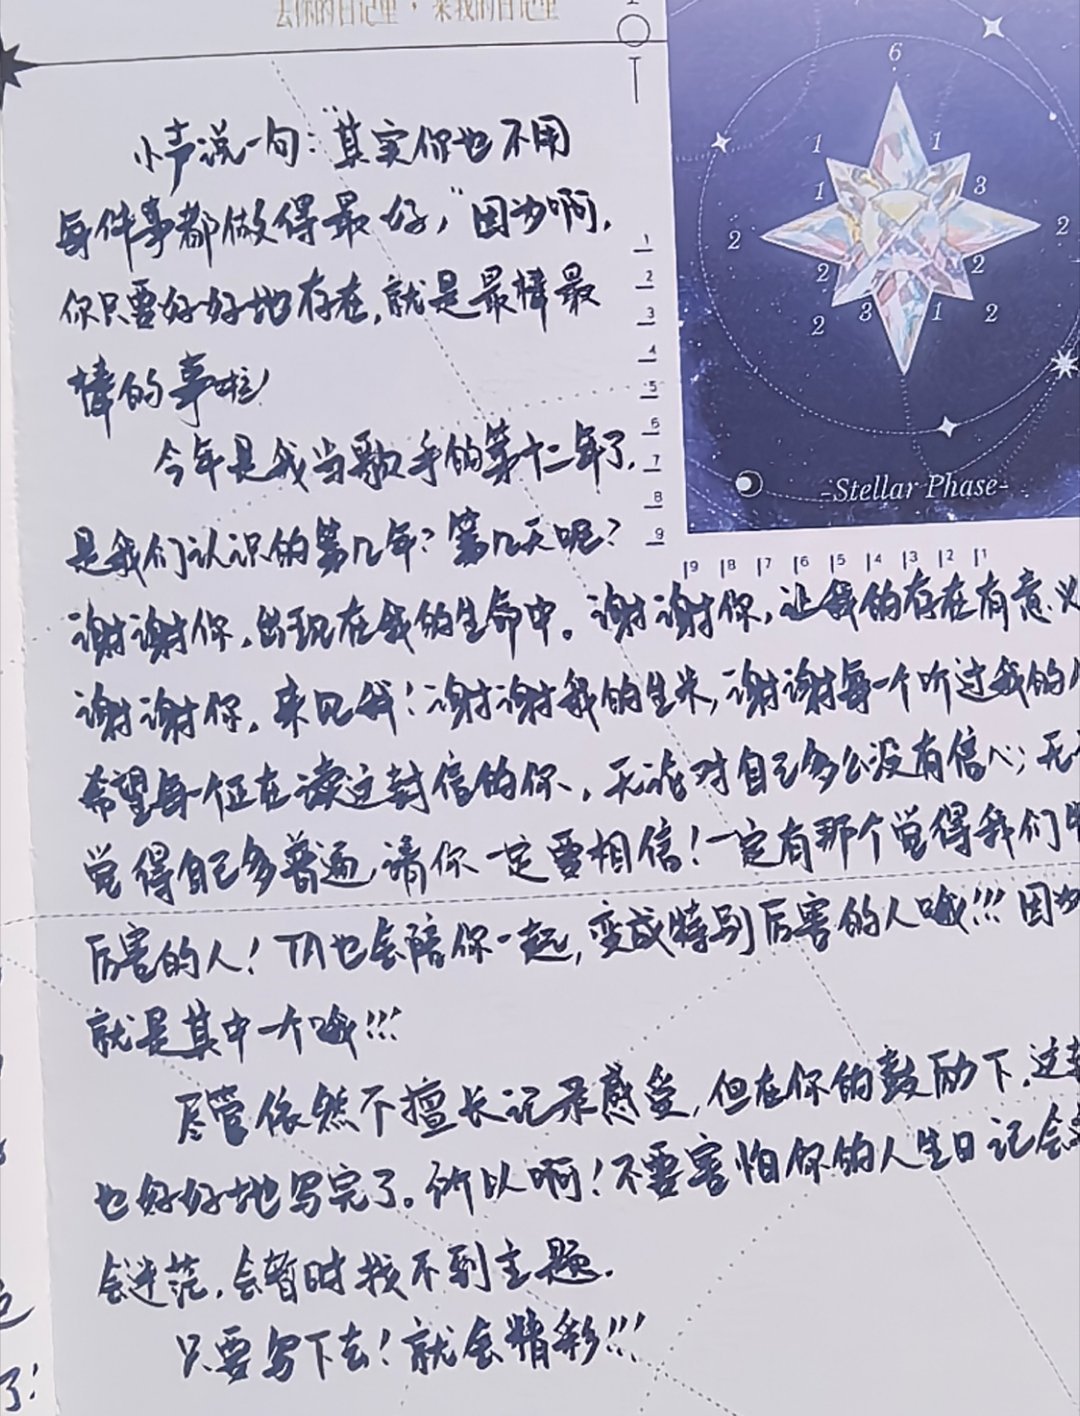 去你的日记里，来我的日记里
悄声说一句："其实你也不用
每件事都做得最好，"因为啊，
你只要好好地存在，就是最棒最
棒的事啦！
今年是我当歌手的第十二年了，
是我们认识的第几年？第几天呢？
谢谢你，出现在我的生命中。谢谢你，让我的存在有意义
谢谢你，来见我！谢谢我的生米，谢谢每一个听过我的
希望每个正在读这封信的你，无论对自己多么没有信心；无
觉得自己多普通，请你一定要相信！一定有那个觉得我们
厉害的人！TA也会陪你一起，变成特别厉害的人哦!!!因为
就是其中一个哦!!!
尽管依然不擅长记录感受，但在你的鼓励下，这
也好好地写完了。所以啊！不要害怕你的人生日记会
会迷茫，会暂时找不到主题.
只要写下去！就会精彩!!!
了！
6
1 1
1 3
2 2
2 2
2 3 1 2
-Stellar Phase-
1
2
3
4
5
6
7
8
9
9 8 7 6 5 4 3 2 1